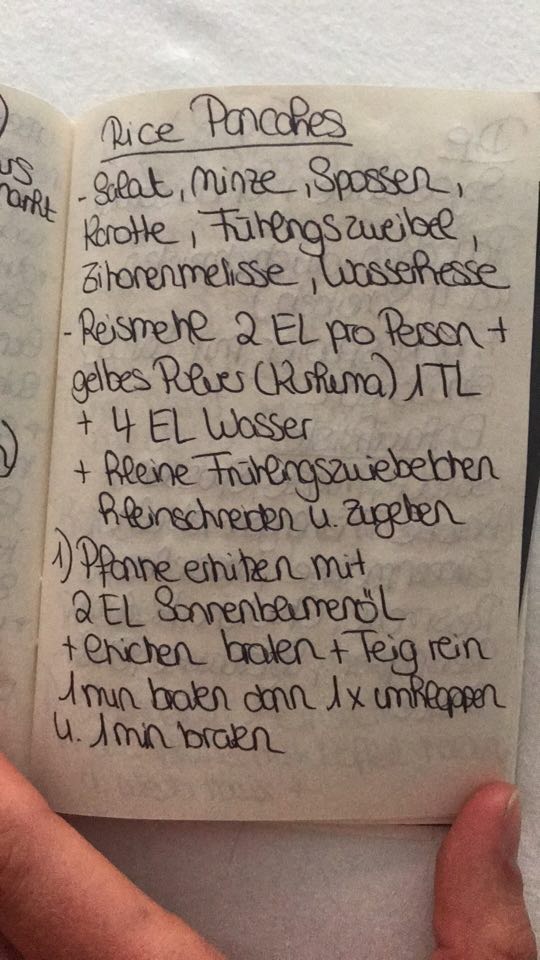 us
markt
Rice Pancakes
- Salat, Minze, Sprossen,
Karotte, Frühlingszweibel,
Zitronenmelisse, Wasserkresse
- Reismehl 2 EL pro Person +
gelbes Pulver (Kurkuma) 1 TL
+ 4 EL Wasser
+ kleine Frühlingszwiebelchen
kleinschneiden u. zugeben
1) Pfanne erhitzen mit
2 EL Sonnenblumenöl
+ braten + Teig rein
1 min braten dann 1x umklappen
u. 1 min braten